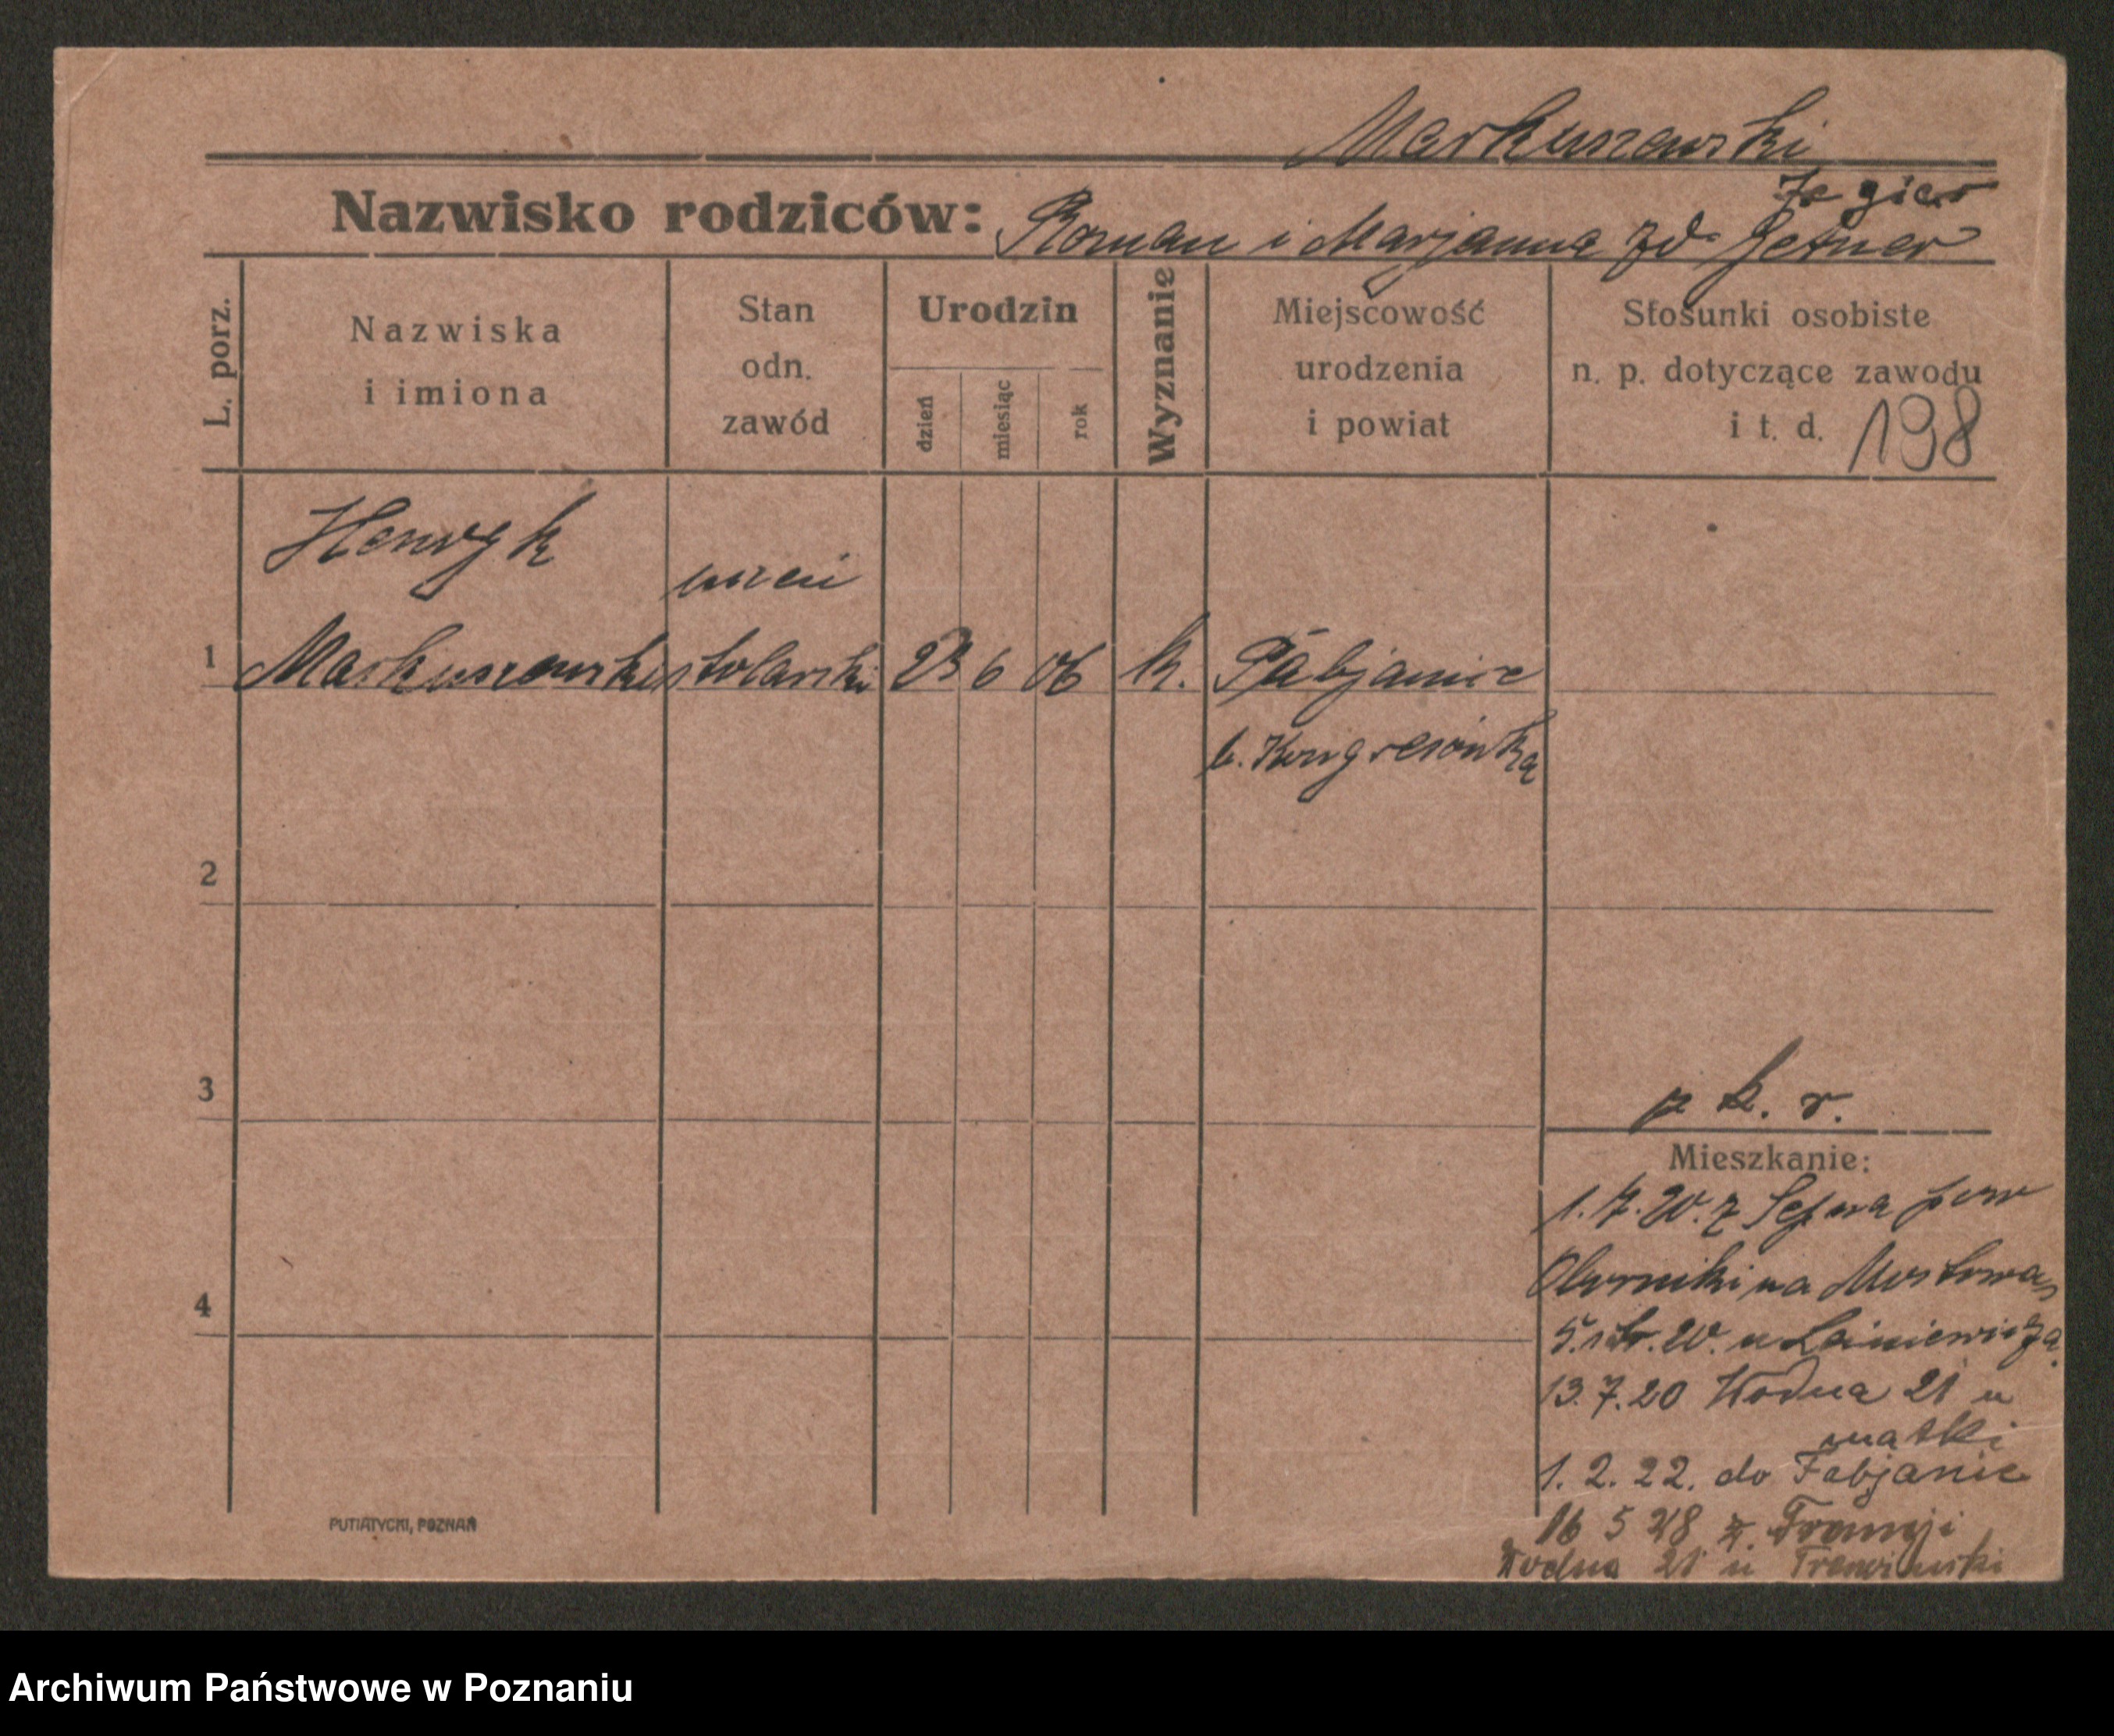 Markuszewski
Zegier
Nazwisko rodziców: Roman i Marjanna zd.
L. porz.
Nazwiska
i imiona
Stan
odn.
zawód
Urodzin
dzień
miesiąc
rok
Wyznanie
Miejscowość
urodzenia
i powiat
Stosunki osobiste
n. p. dotyczące zawodu
i t. d. 198
Henryk uczeń
1 Markuszewski stolarski 23 6 06 k. Pabjanice
b. Kongresówka
2
3
p k. r.
Mieszkanie:
1. 7. 20. z pow
Oborniki na Mostowa
13. 7. 20 Wodna 21 u
matki
4
1. 2. 22. do Pabjanic
16 5 28 z Francji
Wodna 21 u
PUTIATYCKI, POZNAŃ
Archiwum Państwowe w Poznaniu